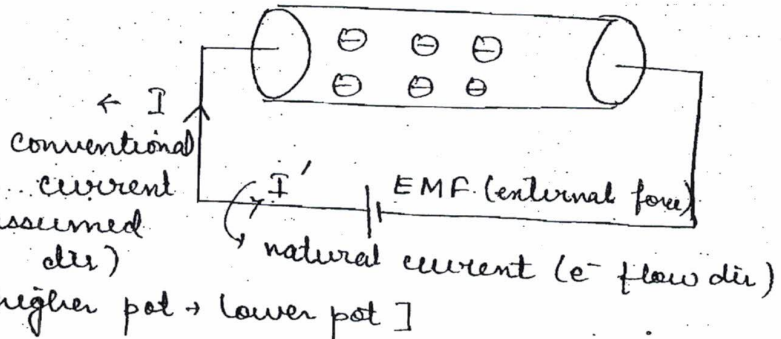 ⊖ ⊖ ⊖
⊖ ⊖ ⊖
← I
conventional
current
ssumed
dir)
I'
EMF (external force)
natural current (e⁻ flow dir)
higher pot → lower pot ]